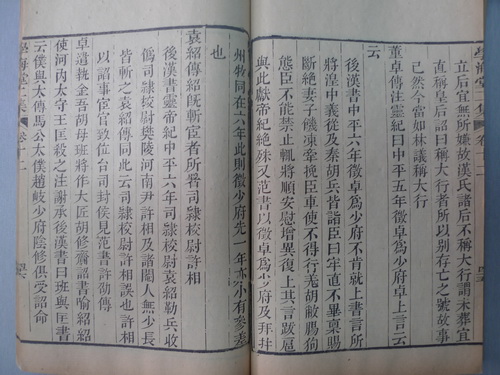 立后宜無所嫌故漢氏諸后不稱大行謂未葬宜
直稱皇后詔曰稱大行者所以别存亡之號故事
已然今當如林議稱大行
董卓傳注靈紀曰中平五年徵卓為少府卓上言云
云
後漢書中平六年徵卓為少府不肯就上書言所
將湟中義從及秦胡兵皆詣臣曰牢直不畢稟賜
斷絕妻子饑凍牽挽臣車使不得行羌胡敝腸狗
態臣不能禁止輒將順安慰增異復上其言跋扈
與此獻帝紀絕殊又范書以徵卓為少府及拜并
州牧同在六年此則徵少府先一年亦小有參差
也
袁紹傳紹旣斬宦者所署司隷校尉許相
後漢書靈帝紀中平六年司隷校尉袁紹勒兵收
偽司隷校尉樊陵河南尹許相及諸閹人無少長
皆斬之袁紹傳同此云司隷校尉許相誤也許相
以諂事宦官致位台司封侯見范書許劭傳
卓遣執金吾胡母班將作大匠胡修齎詔書喻紹紹
使河内太守王匡殺之注謝承後漢書曰班與匡書
云僕與太傅馬公太僕趙岐少府陰修俱受詔命
學海堂二集 卷十二